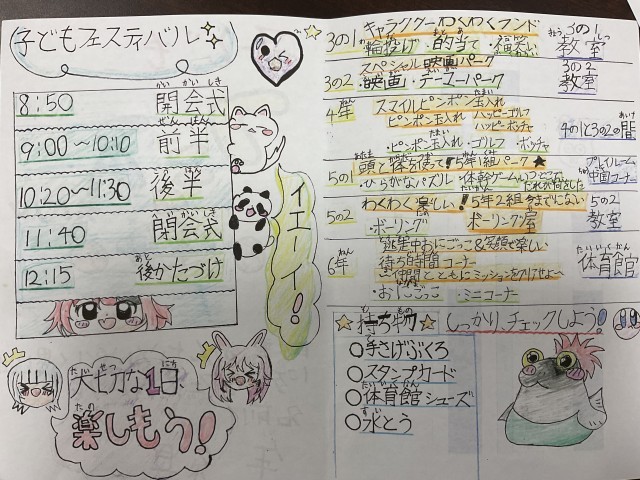 子どもフェスティバル
8:50 開会式
かい かい しき
9:00〜10:10 前半
ぜんはん
10:20〜11:30 後半
11:40 閉会式
12:15 後かたづけ
あと
イエーイ!
大切な1日
たい せつ にち
楽しもう!
たの
3の1 キャラクターわくわくランド 3の1
・輪投げ ・的当て ・福笑い 教室
3の2 スペシャル映画パーク 3の2
・映画 教室
4年 スマイルピンポン玉入れ
ピンポン玉入れ ハッピーゴルフ
ハッピーボッチャ 4の1と3の2の間
・ピンポン玉入れ ・ゴルフ ・ボッチャ
5の1 頭と体を使って! 5年1組パーク★ プレイルーム
・ひらがなパズル ・体幹ゲーム 中国コーナー
5の2 わくわく楽しい! 5年2組 5の2
・ボーリング ボーリング 教室
6年 楽しい
待ち時間コーナー
体育館
・ミニコーナー
☆持ち物☆ しっかりチェックしよう!
○手さげぶくろ
○スタンプカード
○体育館シューズ
たいいくかん
○水とう
すい